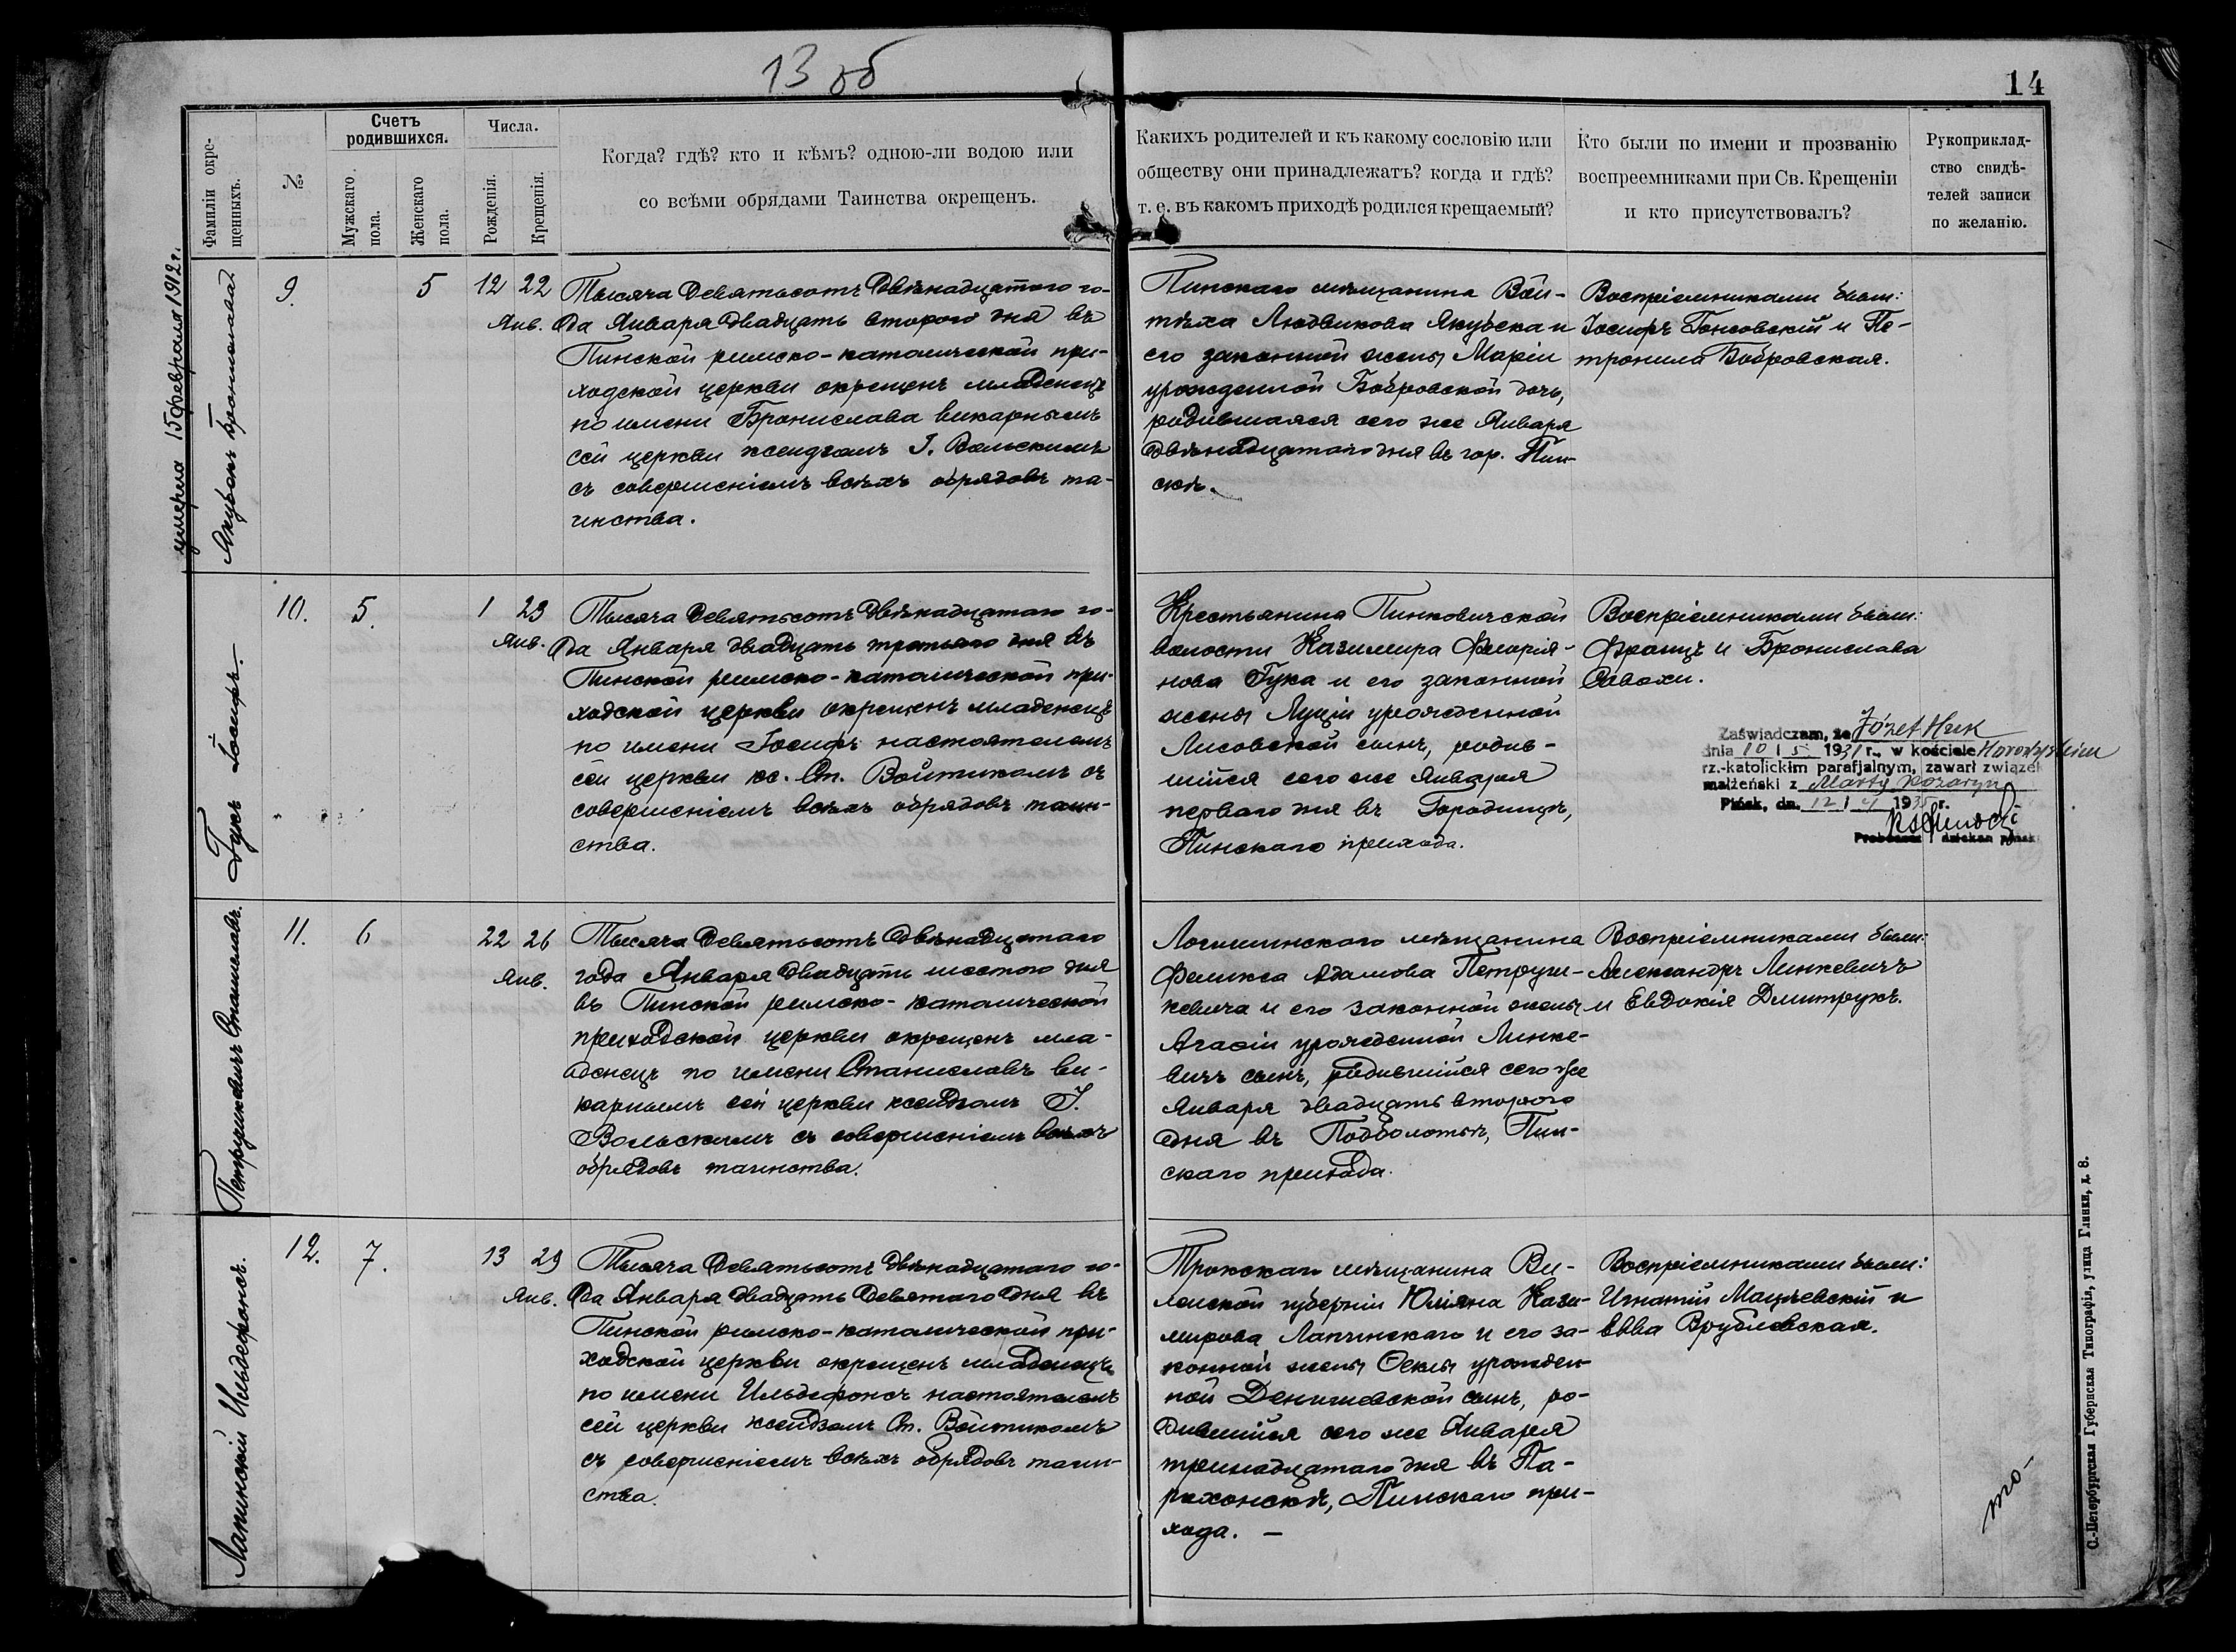 13 об
14
Фамиліи окре-
щенныхъ.
№
Счетъ
родившихся.
Мужскаго
пола.
Женскаго
пола.
Числа.
Рожденія.
Крещенія.
Когда? гдѣ? кто и кѣмъ? одною-ли водою или
со всѣми обрядами Таинства окрещенъ.
Какихъ родителей и къ какому сословію или
обществу они принадлежатъ? когда и гдѣ?
т. е. въ какомъ приходѣ родился крещаемый?
Кто были по имени и прозванію
воспреемниками при Св. Крещеніи
и кто присутствовалъ?
Рукоприклад-
ство свидѣ-
телей записи
по желанію.
умерла 15 февраля 1912 г.
Якубекъ Бронислава
9.
5
12 22
Янв.
Тысяча девятьсотъ двѣнадцатого го-
да Января двадцать второго дня въ
Пинской римско-католической при-
ходской церкви окрещенъ младенецъ
по имени Бронислава викарнымъ
сей церкви ксендзомъ І. Вольскимъ
съ совершеніемъ всѣхъ обрядовъ та-
инства.
Пинскаго мѣщанина Вой-
тѣха Людвикова Якубека и
его законной жены Маріи
урожденной Бобровской дочь,
родившаяся сего же Января
двѣнадцатаго дня въ гор. Пин-
скѣ.
Воспріемниками были:
Іосифъ Гонсовскій и Пе-
тронила Бобровская.
Гукъ Іосифъ.
10.
5.
1 23
Янв.
Тысяча девятьсотъ двѣнадцатаго го-
да Января двадцать третьяго дня въ
Пинской римско-католической при-
ходской церкви окрещенъ младенецъ
по имени Іосифъ настоятелемъ
сей церкви кс. Ст. Войтикомъ съ
совершеніемъ всѣхъ обрядовъ таин-
ства.
Крестьянина Пинковичской
волости Казимира Флорія-
нова Гука и его законной
жены Луціи урожденной
Лисовской сынъ, родив-
шійся сего же Января
перваго дня въ Городищѣ,
Пинскаго прихода.
Воспріемниками были:
Францъ и Бронислава
Савохи.
Zaświadczam, że Józef Huk
dnia 10 | 5 1931 r., w kościele Horodyszczu
rz.-katolickim parafjalnym, zawarł związek
małżeński z Martą
Pińsk, dn. 12 | 4 193 r.
Proboszcz i dziekan pińsk
Петрушкевичъ Станиславъ.
11.
6
22 26
Янв.
Тысяча девятьсотъ двѣнадцатаго
года Января двадцать шестого дня
въ Пинской римско-католической
приходской церкви окрещенъ мла-
денецъ по имени Станиславъ ви-
карнымъ сей церкви ксендзомъ І.
Вольскимъ съ совершеніемъ всѣхъ
обрядовъ таинства.
Логишинскаго мѣщанина
Феликса Адамова Петруш-
кевича и его законной жены
Агаѳіи урожденной Линке-
вичъ сынъ, родившійся сего же
Января двадцать второго
дня въ Подболотьѣ, Пин-
скаго прихода.
Воспріемниками были:
Александръ Линкевичъ
и Евдокія Дмитрукъ.
Лапинскій Ильдефонсъ.
12.
7.
13 29
Янв.
Тысяча девятьсотъ двѣнадцатаго го-
да Января двадцать девятаго дня въ
Пинской римско-католической при-
ходской церкви окрещенъ младенецъ
по имени Ильдефонсъ настоятелемъ
сей церкви ксендзомъ Ст. Войтикомъ
съ совершеніемъ всѣхъ обрядовъ таин-
ства.
Трокскаго мѣщанина Ви-
ленской губерніи Юліяна Кази-
мирова Лапинскаго и его за-
конной жены Ѳеклы урожден-
ной Денишевской сынъ, ро-
дившійся сего же Января
тринадцатаго дня въ Па-
рахонскѣ, Пинскаго при-
хода. —
Воспріемниками были:
Игнатій Мацуевскій и
Евва Врублевская.
то-
С.-Петербургская Губернская Типографія, улица Глинки, д. 8.